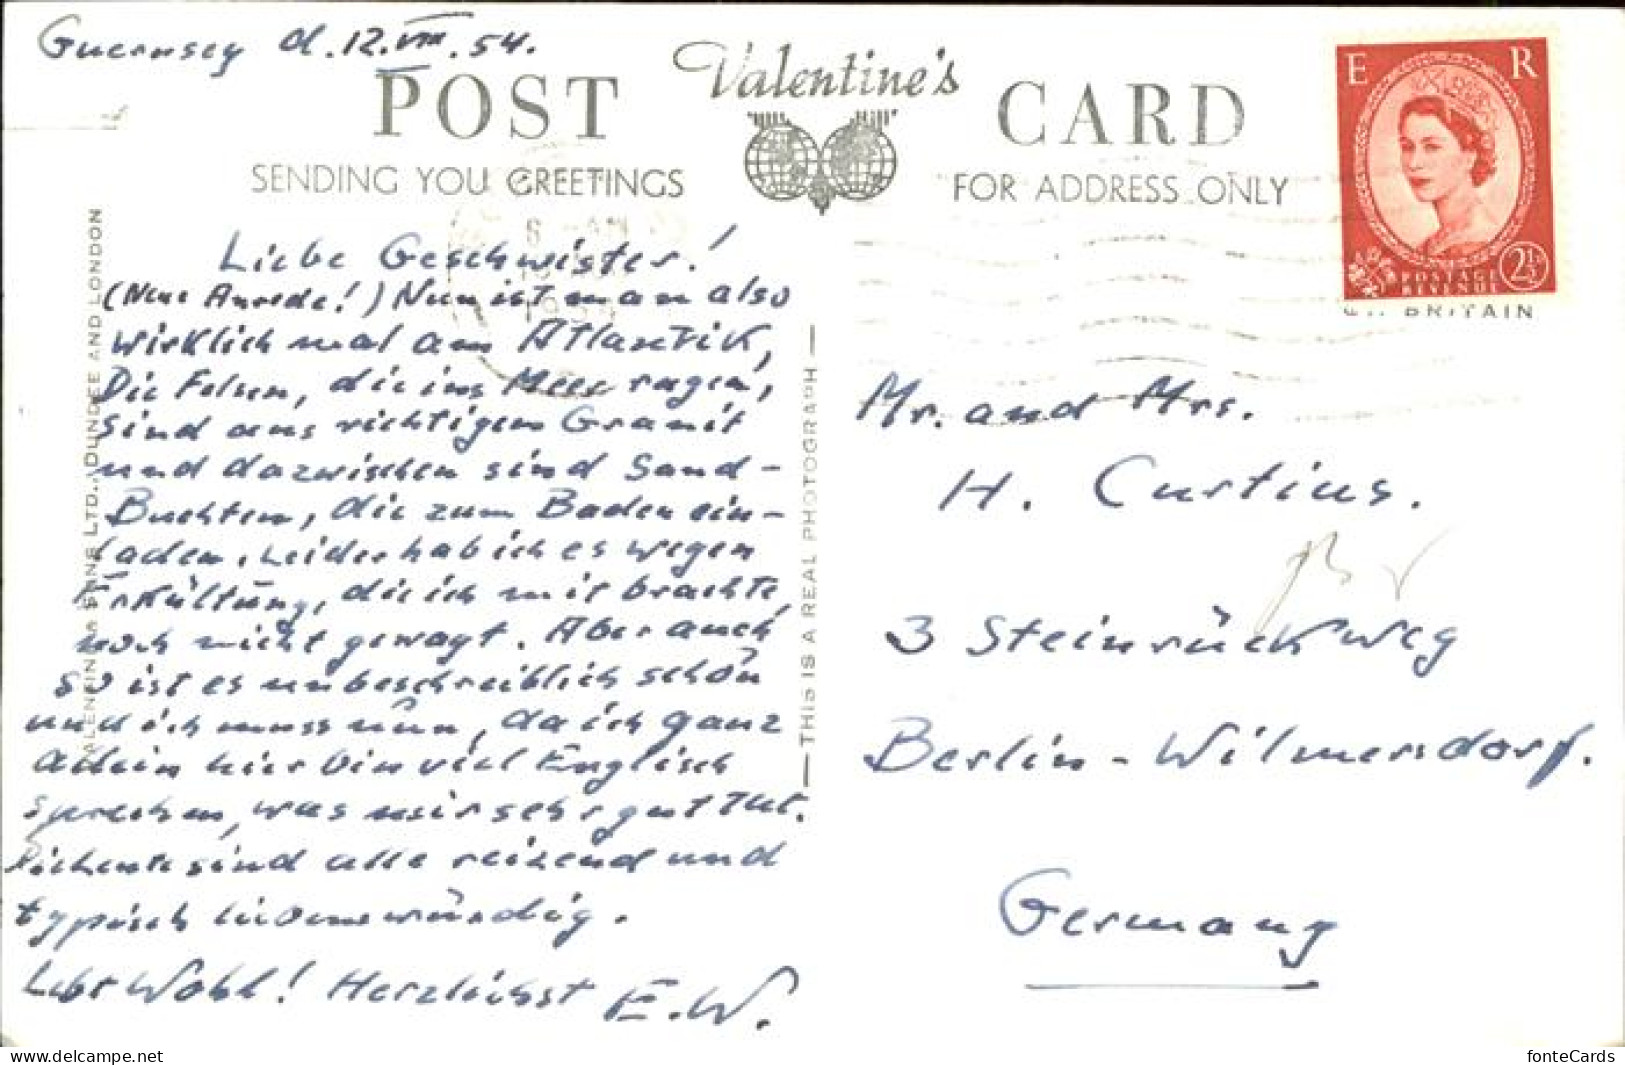 Guernsey d. 12. VIII. 54.
POST Valentine's CARD
SENDING YOU GREETINGS
FOR ADDRESS ONLY
E R
POSTAGE 2½
REVENUE
BRITAIN
Liebe Geschwister!
(Neue Anrede!) Nun ist man also
wirklich mal am Atlantik,
Die Felsen, die ins Meer ragen,
sind aus richtigem Granit
und dazwischen sind Sand-
Buchten, die zum Baden ein-
laden. Leider hab ich es wegen
Erkältung, die ich mit brachte,
noch nicht gewagt. Aber auch
so ist es unbeschreiblich schön
und ich muss nun, da ich ganz
allein hier bin viel Englisch
sprechen, was mir sehr gut tut.
sind alle reizend und
typisch liebenswürdig.
Lebt Wohl! Herzlichst E.W.
VALENTINE & SONS LTD., DUNDEE AND LONDON
THIS IS A REAL PHOTOGRAPH
Mr. and Mrs.
H. Curtius.
3 Steinrückweg
Berlin-Wilmersdorf.
Germany
https://www.delcampe.net
fonteCards